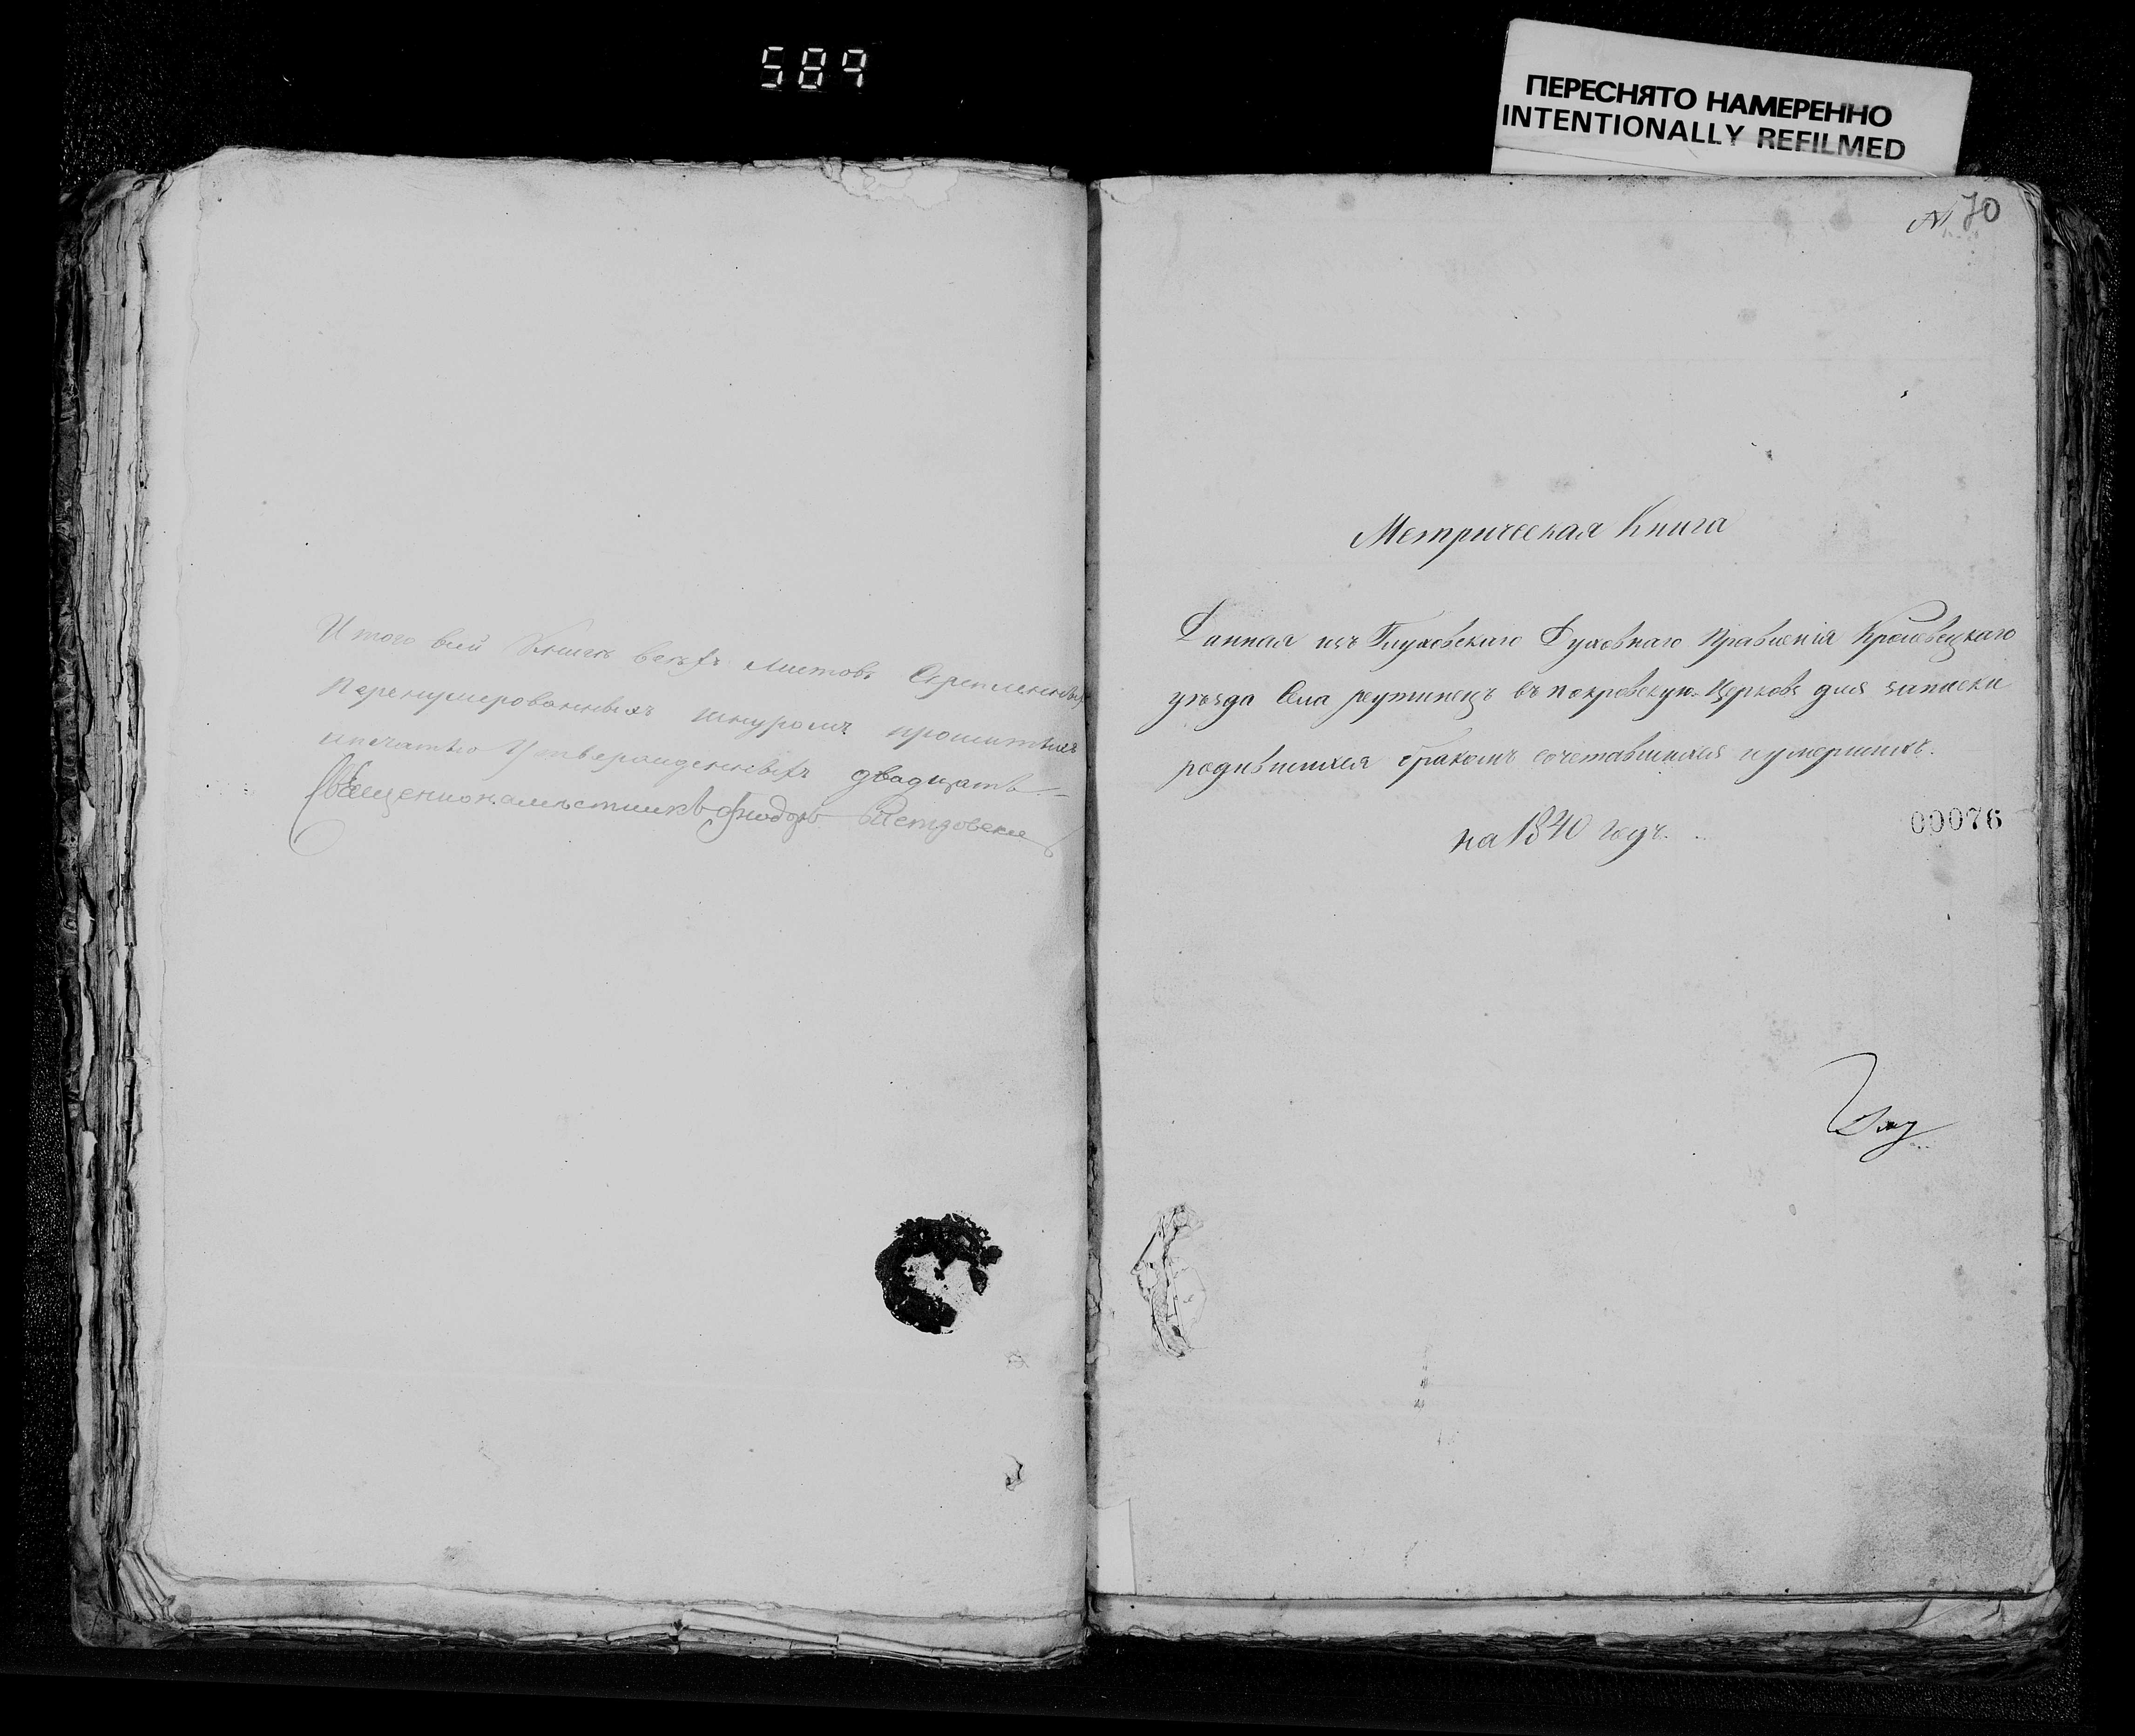 589
ПЕРЕСНЯТО НАМЕРЕННО
INTENTIONALLY REFILMED
Итого всей Книги всехъ листовъ Скрепленныхъ
Перенумерованныхъ шнуромъ прошитыхъ
ипечатью Утвержденныхъ двадцать
Священнонаместникъ Фиодоръ
№ 70
Метрическая Книга
Данная изъ Глуховского Духовнаго Правленія Кролевецкаго
уезда Села реутинецъ въ покровскую Церковъ для записки
родившихся бракомъ сочетавшихся иумершихъ.
на 1840 годъ.
00076